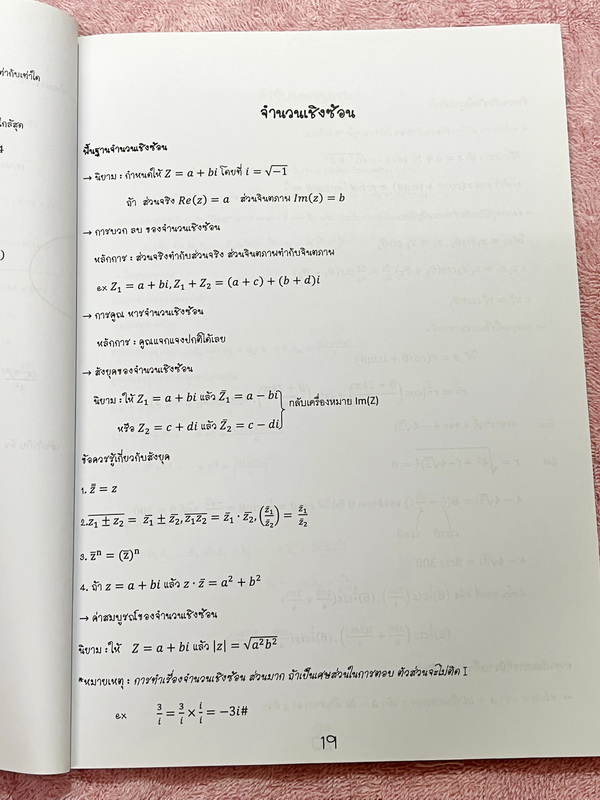 ท่ากับเท่าใด
ใกล้สุด
จำนวนเชิงซ้อน
พื้นฐานจำนวนเชิงซ้อน
→ นิยาม : กำหนดให้ Z = a + bi โดยที่ i = √−1
ถ้า ส่วนจริง Re(z) = a ส่วนจินตภาพ Im(z) = b
→ การบวก ลบ ของจำนวนเชิงซ้อน
หลักการ : ส่วนจริงทำกับส่วนจริง ส่วนจินตภาพทำกับจินตภาพ
ex Z₁ = a + bi, Z₁ + Z₂ = (a + c) + (b + d)i
→ การคูณ หารจำนวนเชิงซ้อน
หลักการ : คูณแจกแจงปกติได้เลย
→ สังยุคของจำนวนเชิงซ้อน
นิยาม : ให้ Z₁ = a + bi แล้ว Z̄₁ = a − bi
หรือ Z₂ = c + di แล้ว Z̄₂ = c − di } กลับเครื่องหมาย Im(Z)
ข้อควรรู้เกี่ยวกับสังยุค
1. z̿ = z
2. \overline{z₁ ± z₂} = z̄₁ ± z̄₂, \overline{z₁z₂} = z̄₁ · z̄₂, (z̄₁/z̄₂) = z̄₁/z̄₂
3. z̄ⁿ = (z̄)ⁿ
4. ถ้า z = a + bi แล้ว z · z̄ = a² + b²
→ ค่าสมบูรณ์ของจำนวนเชิงซ้อน
นิยาม : ให้ Z = a + bi แล้ว |z| = √a²b²
*หมายเหตุ : การทำเรื่องจำนวนเชิงซ้อน ส่วนมาก ถ้าเป็นเศษส่วนในการตอบ ตัวส่วนจะไม่ติด I
ex 3/i = 3/i × i/i = −3i#
19